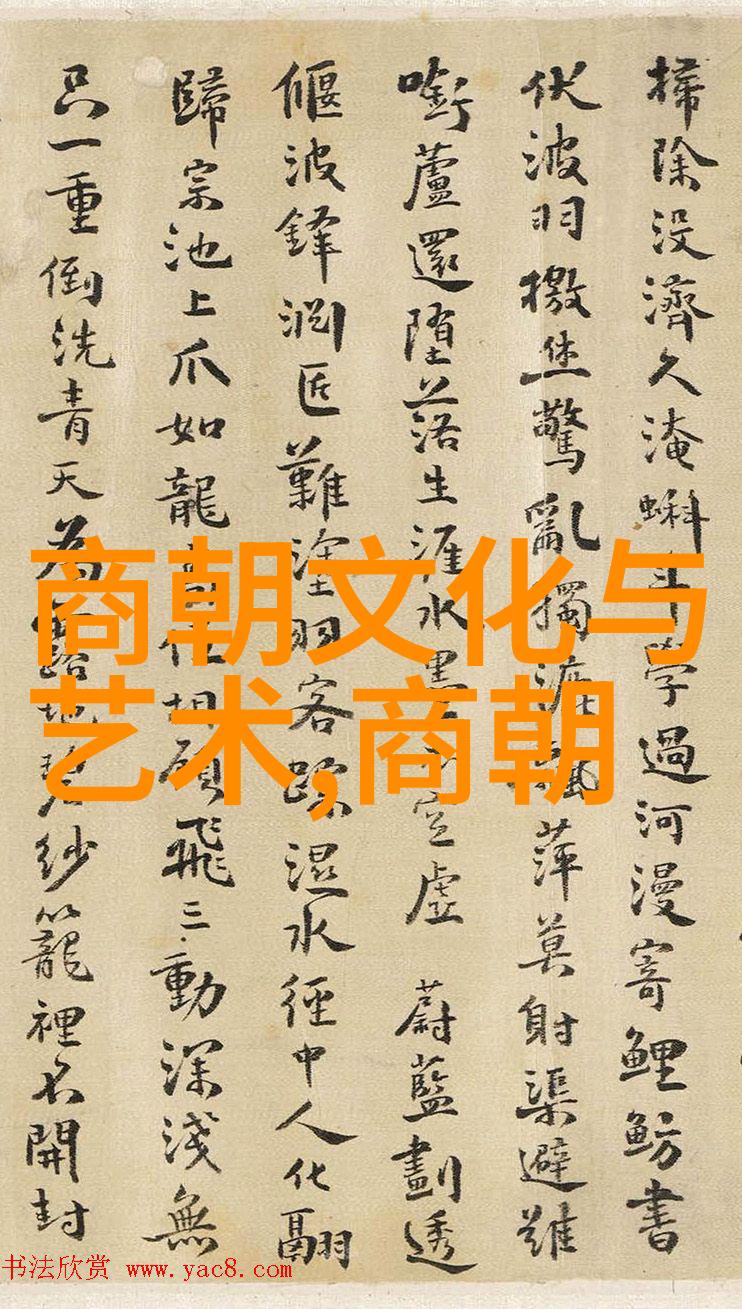 掃除没濟久淹蝌斗過河漫寄鯉魴書
伏波羽檄驚亂獨萍莫射渠避難
啣蘆還墮落生涯水墨空虛 蔚藍劃透
偃波鋒匠難塗羽客蹤濕水徑中人化翮
歸宗池上爪如龍飛三動深淺無
只一重倒洗青天為地碧紗籠裡不開封
商朝文化与
艺术,商朝
书法欣赏 www.yac8.com